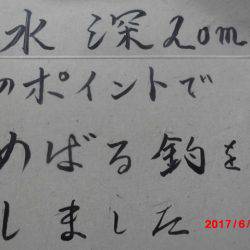 水深20m
のポイントで
めばる釣を
しました
2017/6/